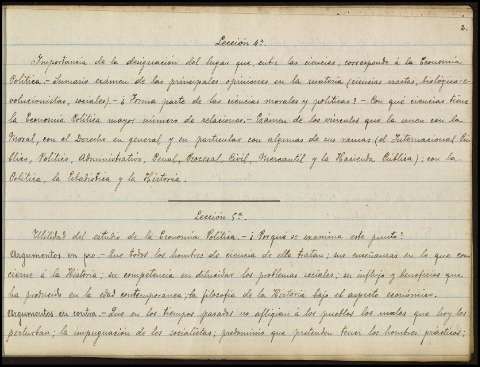 3.
Lección 4ª
Importancia de la designación del lugar que, entre las ciencias, corresponde á la Economía
Política.- Sumario examen de las principales opiniones en la materia (ciencias exactas, biológico-e-
volucionistas, sociales).- ¿Forma parte de las ciencias morales y políticas?- Con que ciencias tiene
la Economía Política mayor número de relaciones.- Examen de los vínculos que la unen con la
Moral, con el Derecho en general y en particular con algunas de sus ramas (el Internacional, Pú-
blico, Político, Administrativo, Penal, Procesal, Civil, Mercantil y la Hacienda Pública); con la
Política, la Estadística y la Historia.
Lección 5ª
Utilidad del estudio de la Economía Política.- ¿Porqué se examina este punto?
Argumentos en pro.- Que todos los hombres de ciencia de ella tratan; sus enseñanzas en lo que con-
cierne á la Historia; su competencia en dilucidar los problemas sociales; su influjo y beneficios que
ha producido en la edad contemporánea; la filosofía de la Historia bajo el aspecto económico.
Argumentos en contra.- Que en los tiempos pasados no afligían á los pueblos los males que hoy los
perturban; la impugnación de los socialistas; predominio que pretenden tener los hombres prácticos;